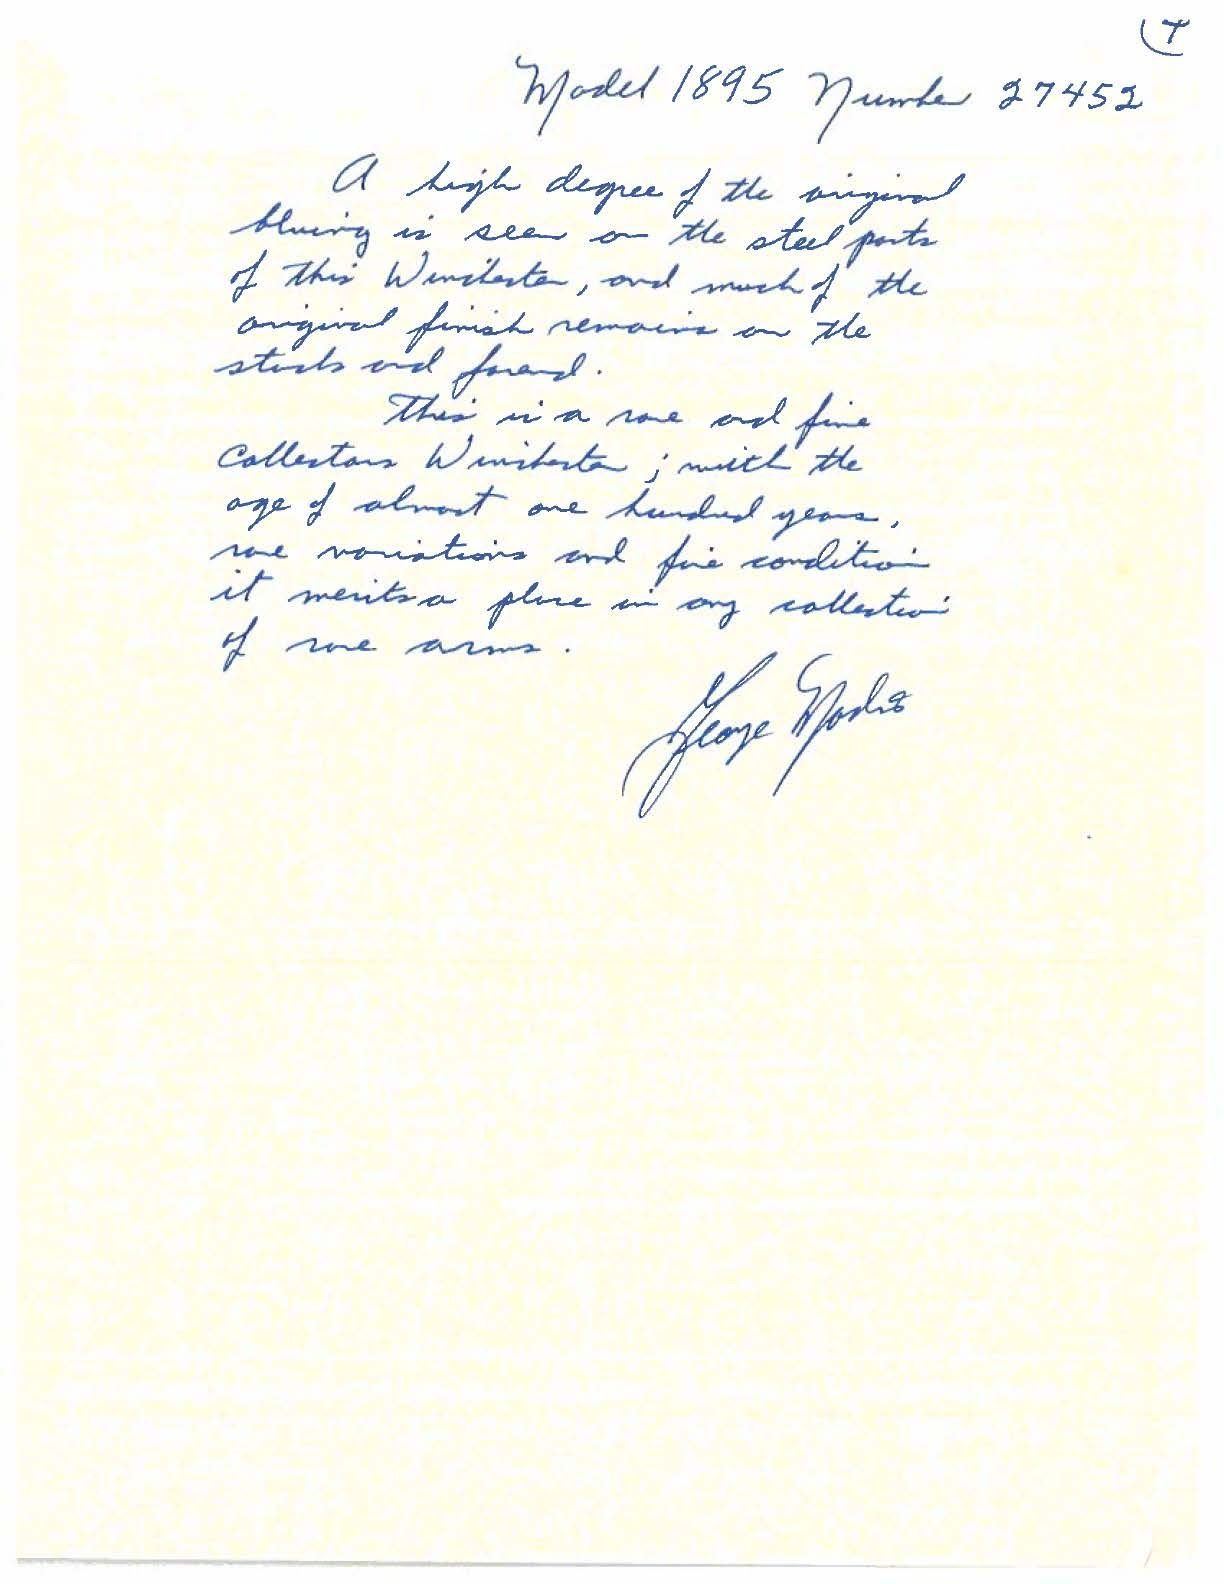 4
Model 1895 Number 27452
A high degree of the original
bluing is seen on the steel parts
of this Winchester, and much of the
original finish remains on the
stock and forend.
This is a rare and fine
Collectors Winchester; with the
age of almost one hundred years,
rare variations and fine condition
it merits a place in any collection
of rare arms.
George Madis